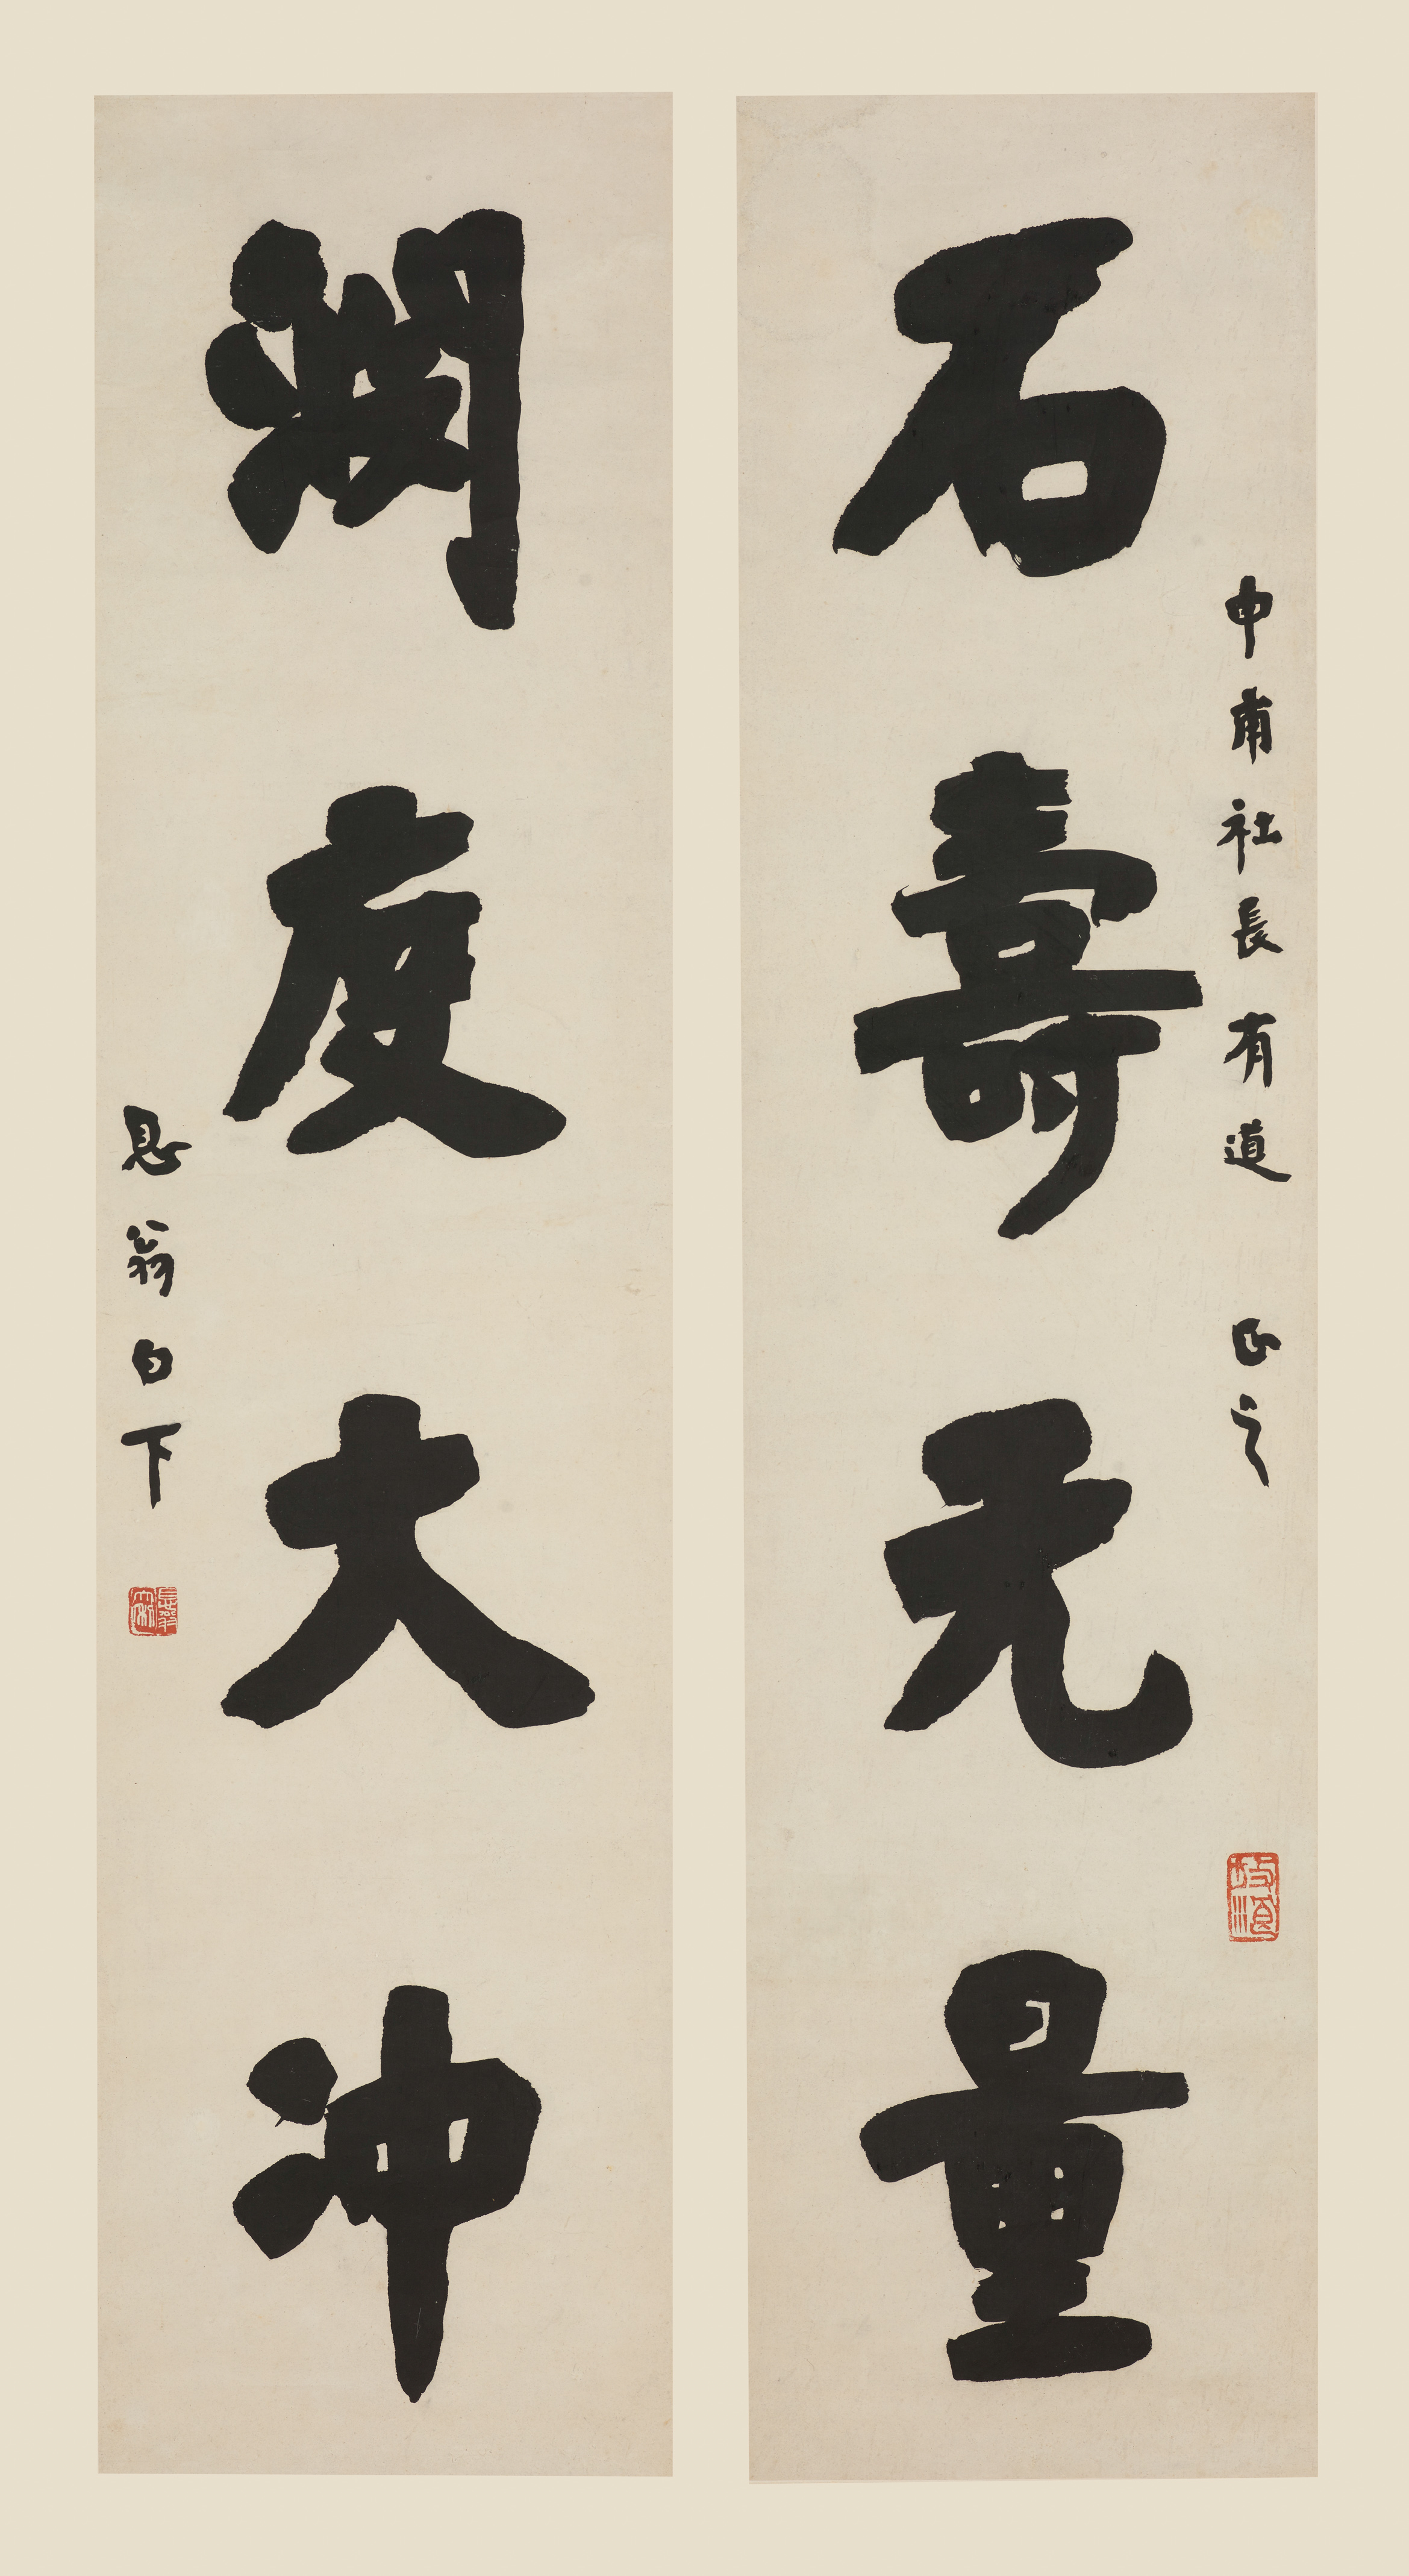 石壽无量
申甫社長有道 正之
淵度大冲
翁白下